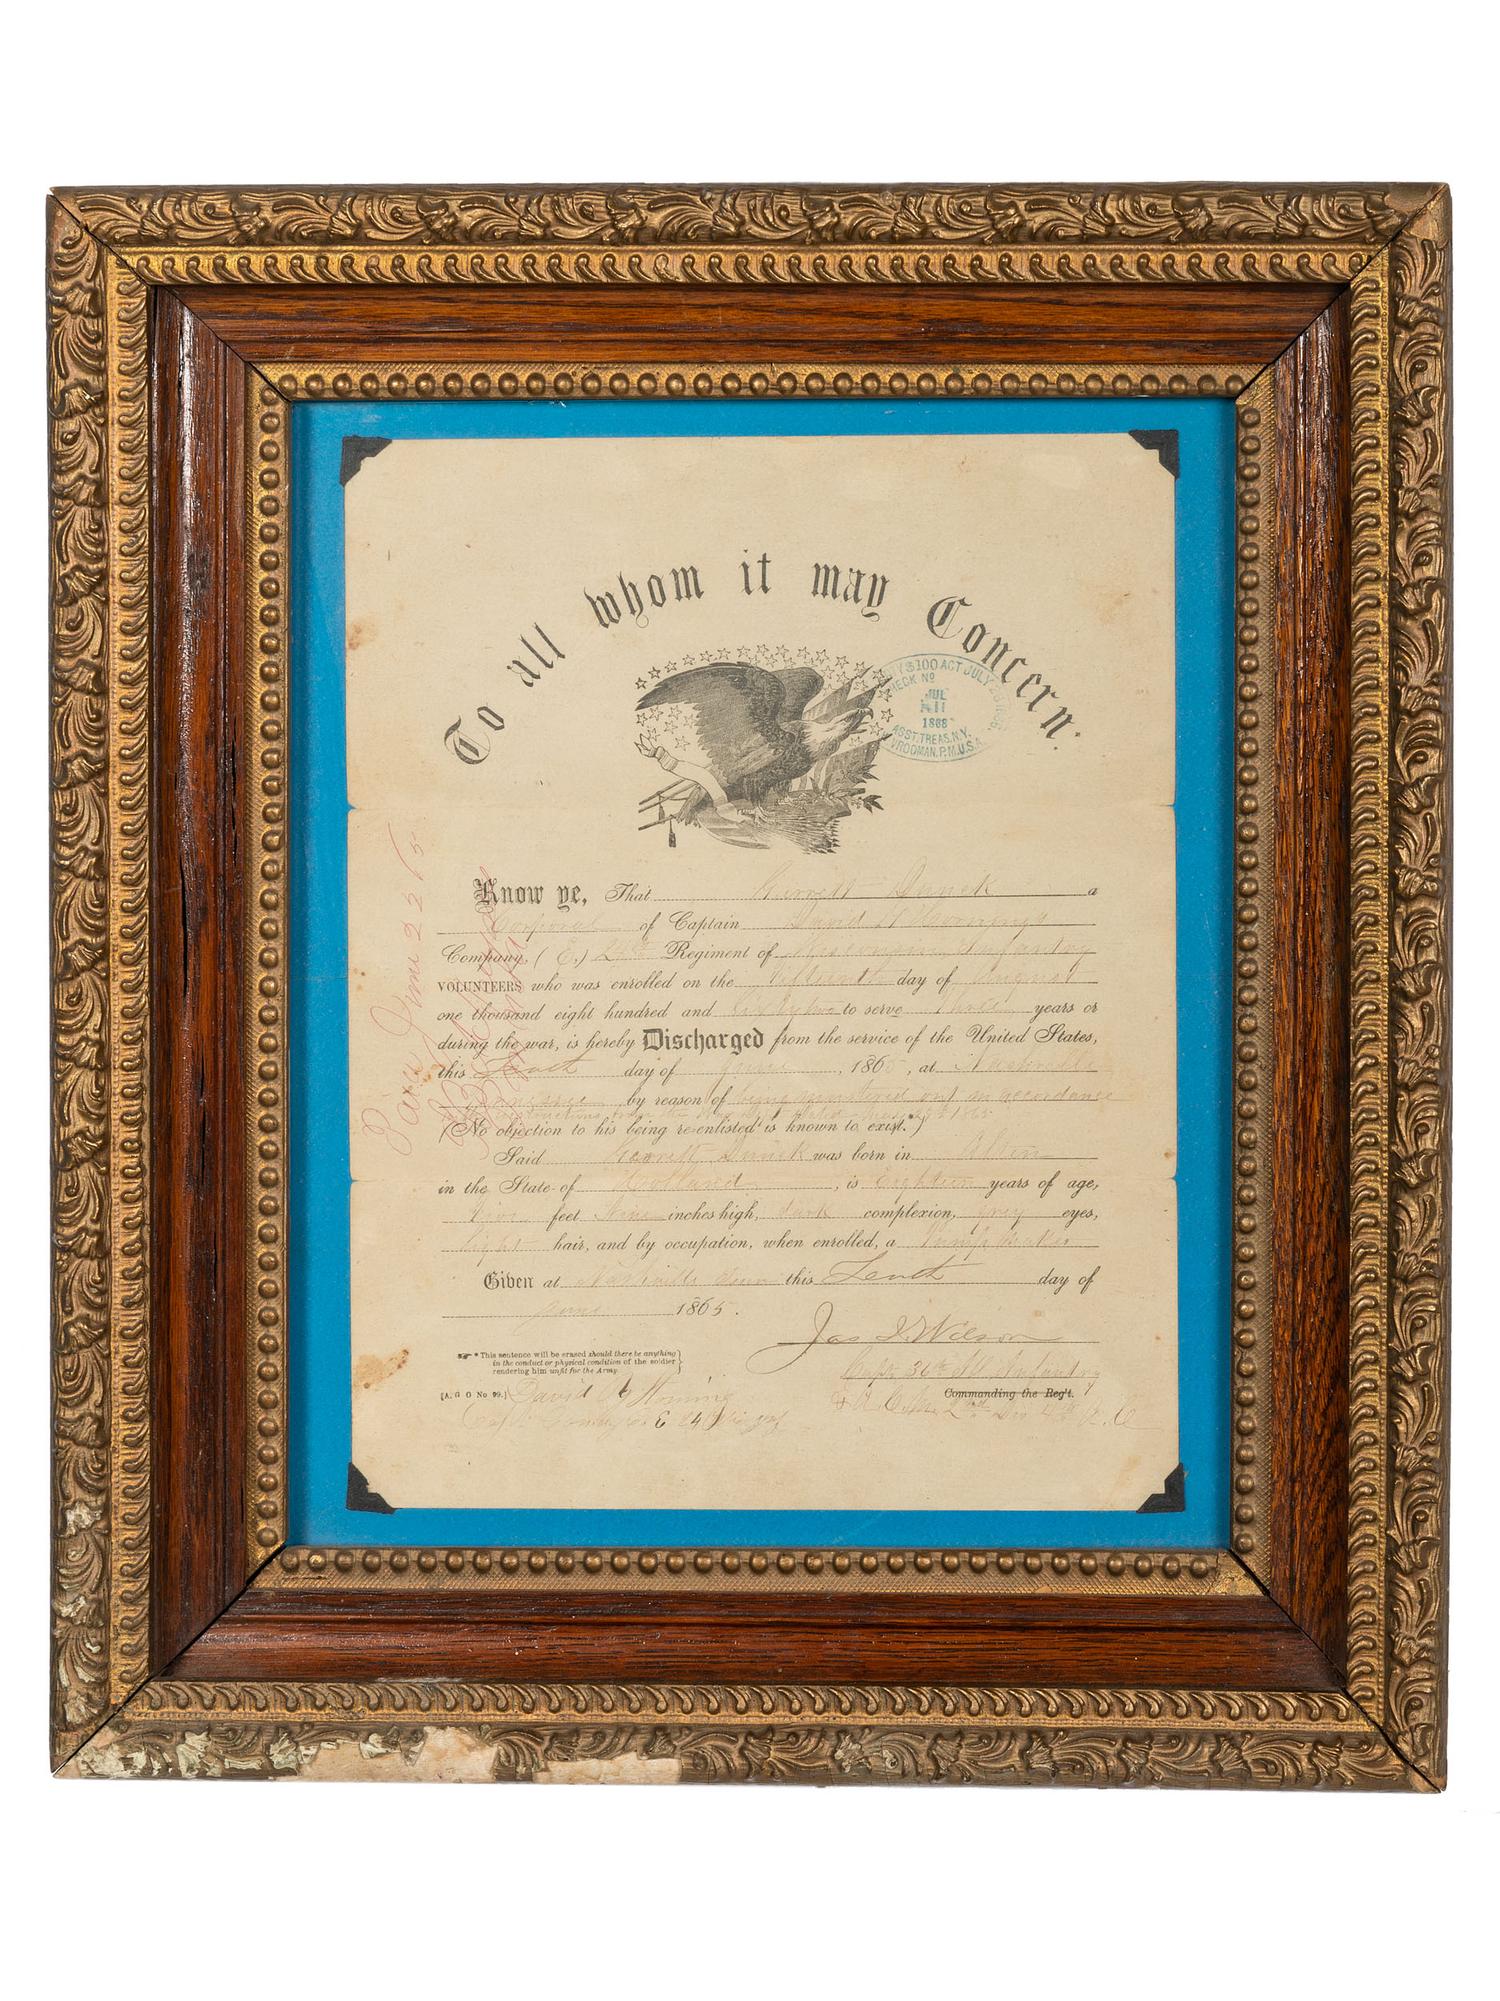 To all whom it may Concern:
NY $100 ACT JULY 28, 1866.
CHECK No
JUL
11
1868
ASST. TREAS. N.Y.
VROOMAN. P.M.U.S.A.
Know ye, That Garrett a
Corporal of Captain David
Company, (E.) 24th Regiment of Wisconsin Infantry
VOLUNTEERS who was enrolled on the day of August
one thousand eight hundred and Sixty two to serve Three years or
during the war, is hereby Discharged from the service of the United States,
this Tenth day of June, 1865, at Nashville
Tennessee by reason of being mustered out in accordance
1865
(No objection to his being re-enlisted is known to exist.*)
Said Garrett was born in
in the State of Holland, is Eighteen years of age,
Five feet Nine inches high, dark complexion, grey eyes,
light hair, and by occupation, when enrolled, a Pump Maker
Given at Nashville Tenn this Tenth day of
June 1865.
Jas I. Wilson
*This sentence will be erased should there be anything
in the conduct or physical condition of the soldier
rendering him unfit for the Army.
Capt 36th Infantry
[A. G. O No 99.] David
Commanding the Reg't.
E 24
Paid June 22 65